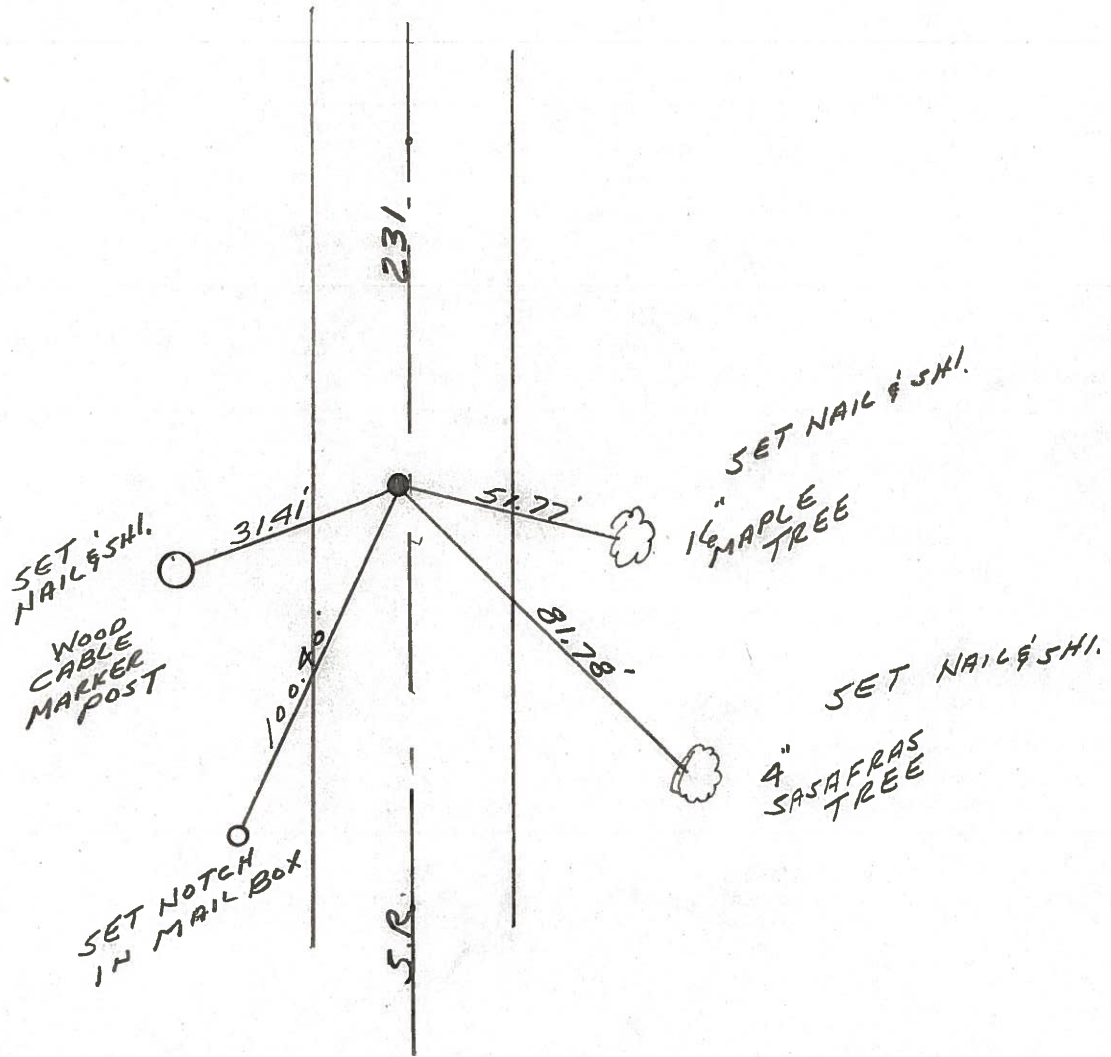 231.
SET NAIL & SHI.
16"
MAPLE
TREE
51.77'
31.41'
SET
NAIL & SHI.
WOOD
CABLE
MARKER
POST
100.40'
81.78'
SET NAIL & SHI.
4"
SASAFRAS
TREE
SET NOTCH
IN MAIL BOX
S.R.